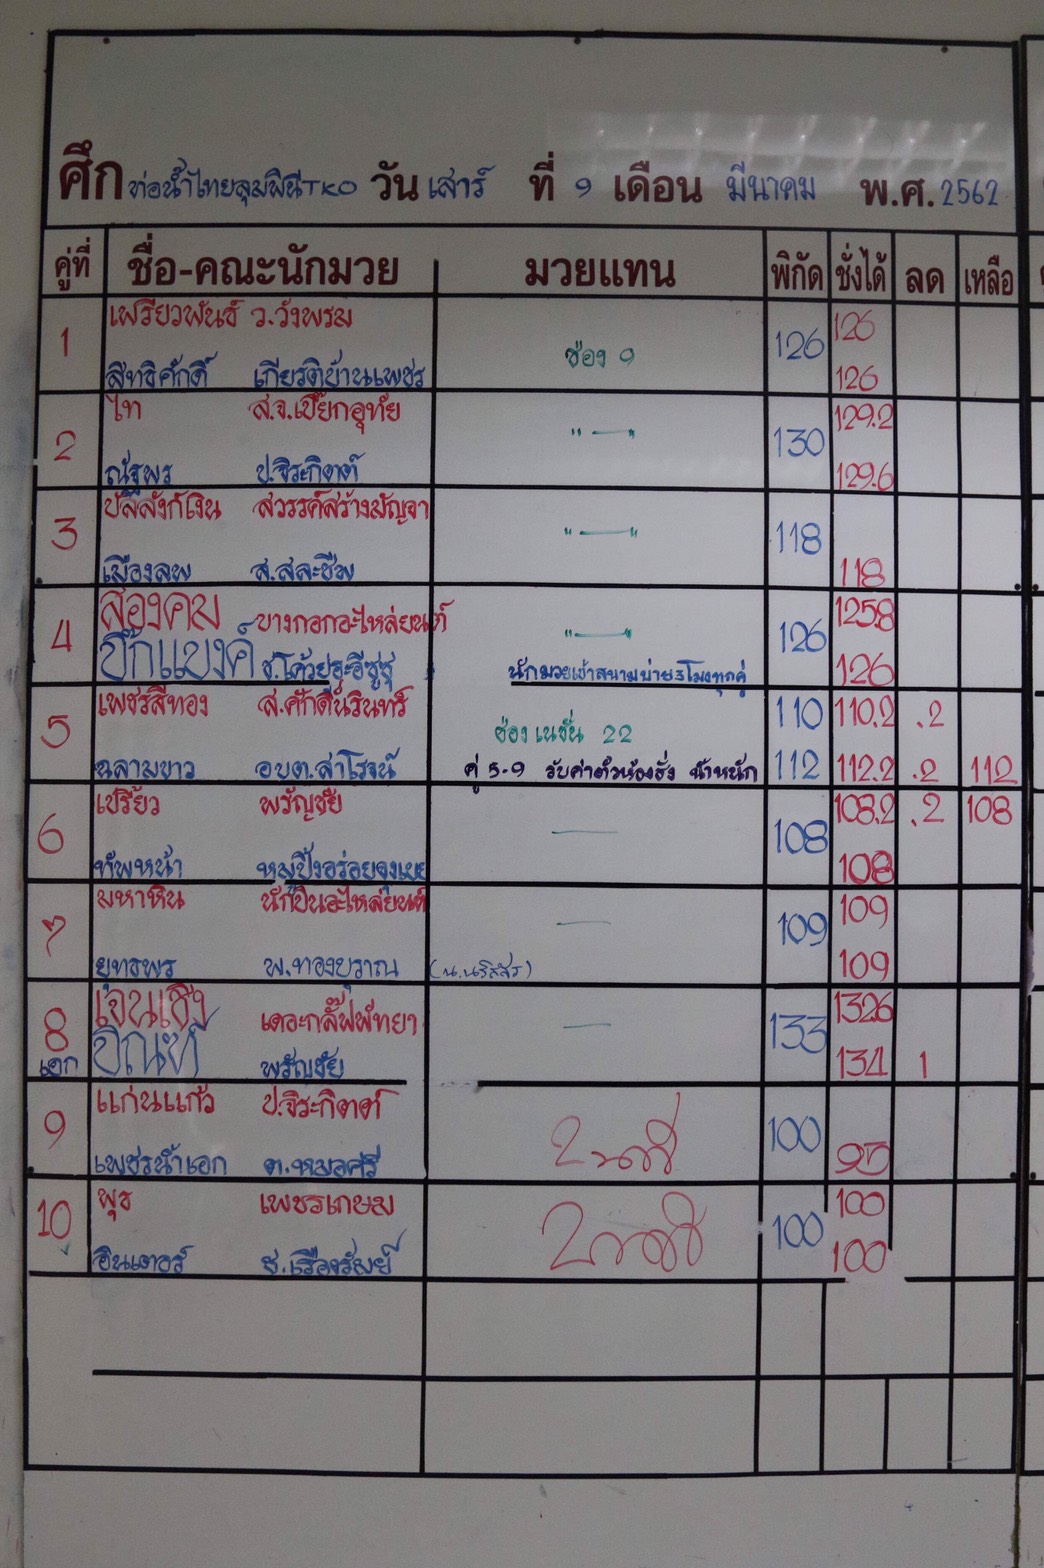 ศึก ท่อน้ำไทยลุมพินีTKO วัน เสาร์ ที่ 9 เดือน มีนาคม พ.ศ. 2562
คู่ที่ ชื่อ-คณะนักมวย มวยแทน พิกัด ชั่งได้ ลด เหลือ
เฟรียวพันธ์ ว.วังพรม 126
1 ช่อง 9 126
สิทธิศักดิ์ เกียรติบ้านเพชร 126
ไท ส.จ.เปี๊ยกอุทัย 129.2
2 " — " 130
ณัฐพร ป.จิระกิตต์ 129.6
บัลลังก์เงิน สวรรค์สร้างปัญจา
3 " — " 118
เมืองลพ ส.สละชีพ 118
สองคม บางกอกอะไหล่ยนต์ 125.8
4 " — " 126
บิ๊กแบงค์ 126
นักมวยเข้าสนามบ่าย 3 โมงทุกคู่
เพชรสีทอง ส.ศักดิ์นรินทร์ 110 110.2 .2
5 ช่อง เนชั่น 22
ฉลามขาว อบต.สำโรงน์ คู่ 5-9 รับค่าตั๋วห้องชั่ง น้ำหนัก 112 112.2 .2 112
เปรี้ยว พรัญชัย 108.2 .2 108
6 — 108
ทัพหน้า หมูปิ้งอร่อยจุงเบย 108
มหาหิน นักบินอะไหล่ยนต์ 109
7 — 109
ยุทธพร พ.ทองบุราณ (น.นริสสร) 109
เจนเชิง เดอะกลั๊ฟพัทยา 132.6
8 — 133
เอก พรัญชัย 134 1
แก่นแก้ว ป.จิระกิตต์
9 100
เพชรน้ำเอก ต.หมอศรี 95
พุธ เพชรเกษม 100
10 100
อินเตอร์ ช.เรืองรัมย์ 100